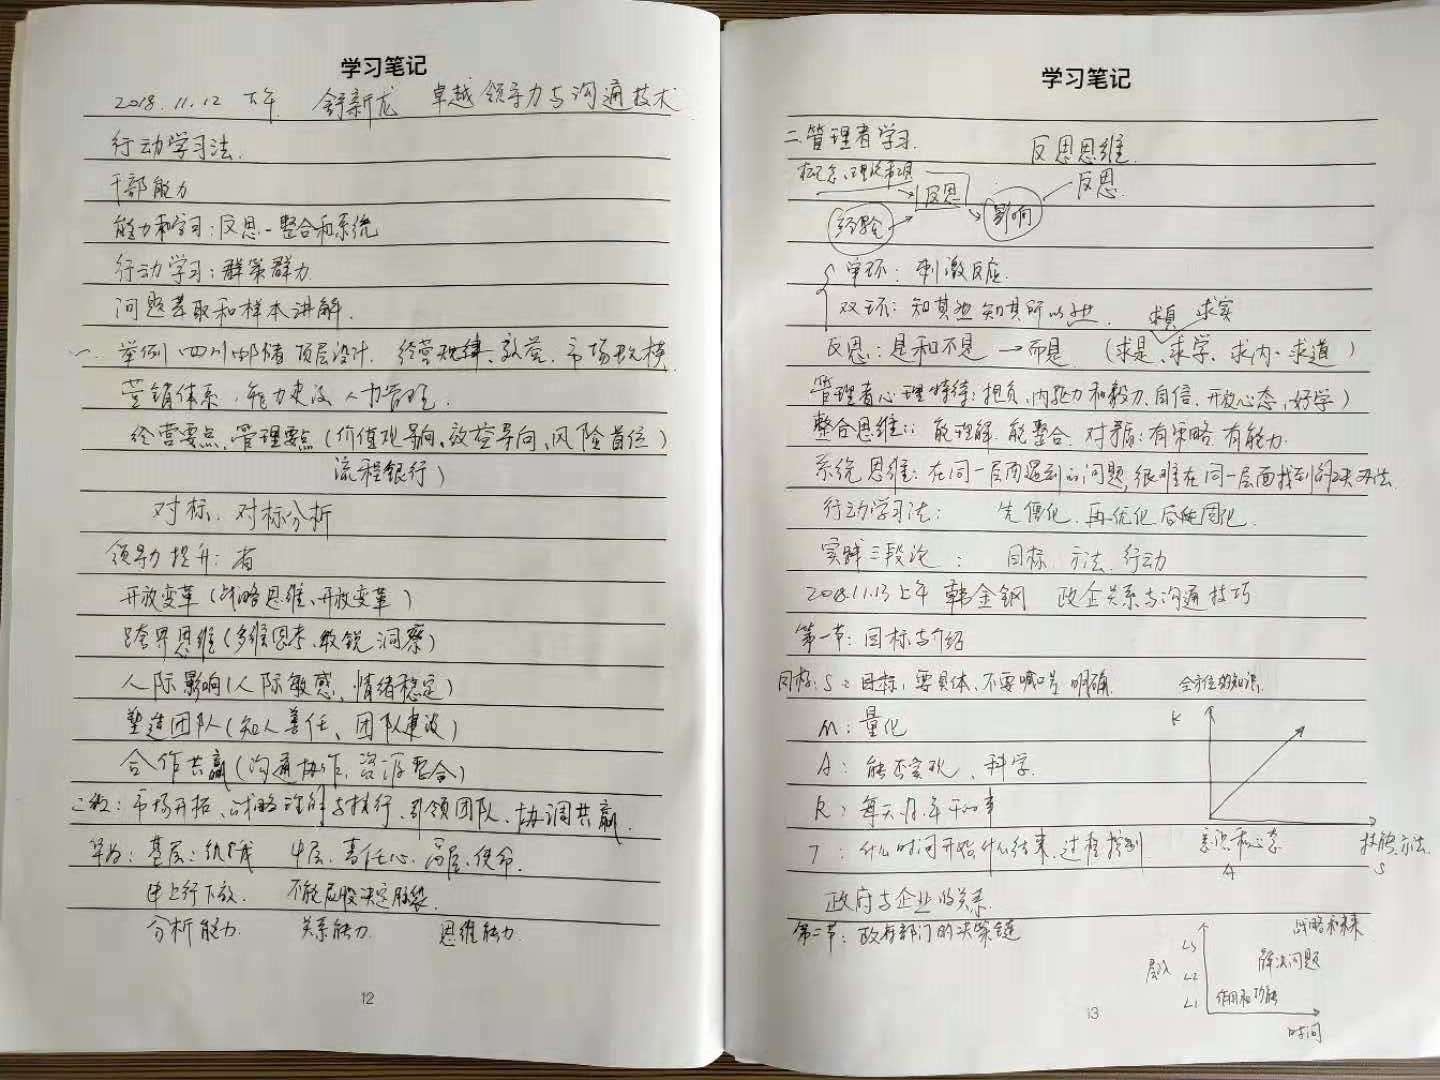 学习笔记
2018.11.12 下午 舒新龙 卓越领导力与沟通技术
行动学习法.
干部能力
能力和学习:反思-整合和系统
行动学习:群策群力.
问题萃取和样本讲解.
一. 举例 四川邮储 顶层设计. 经营规律、敬营、市场规模.
营销体系. 能力建设 人力管理.
经营要点、管理要点(价值观导向、效益导向、风险首位)
流程银行)
对标. 对标分析
领导力提升: 者
开放变革(战略思维、开放变革)
跨界思维(多维思考、敏锐洞察)
人际影响(人际敏感、情绪稳定)
塑造团队(知人善任、团队建设)
合作共赢(沟通协作、资源整合)
市场开拓、战略理解与执行、引领团队、协调共赢.
基层: 中层:责任心. 高层:使命.
上行下效. 不能屁股决定脑袋.
分析能力. 关系能力. 思维能力.
12
学习笔记
二.管理者学习. 反思思维.
概念、理论 反思 反思.
经验 影响
单环: 刺激反应.
双环: 知其然 知其所以然. 求真 求实
反思: 是和不是 →而是 (求是、求学、求内、求道)
管理者心理特征: 担负、内驱力和毅力、自信、开放心态、好学)
整合思维: 能理解. 能整合. 对矛盾:有策略 有能力.
系统思维: 在同一层面遇到的问题,很难在同一层面找到解决办法.
行动学习法: 先僵化. 再优化 后固化.
实践三段论: 目标. 方法. 行动
2018.11.13 上午 韩金钢 政企关系与沟通技巧
第一节: 目标与介绍
目标: S: 目标, 要具体、不要喊口号 明确. 全方位的知识.
M: 量化 K
A: 能否实现、科学.
R: 每天、月、年干的事
T: 什么时间开始什么结果、过程控制. 意识和心态 技能、方法.
A S
政府与企业的关系.
第二节: 政府部门的决策链 战略和未来
L3 解决问题
层次 L2
L1 作用和功能
13 时间